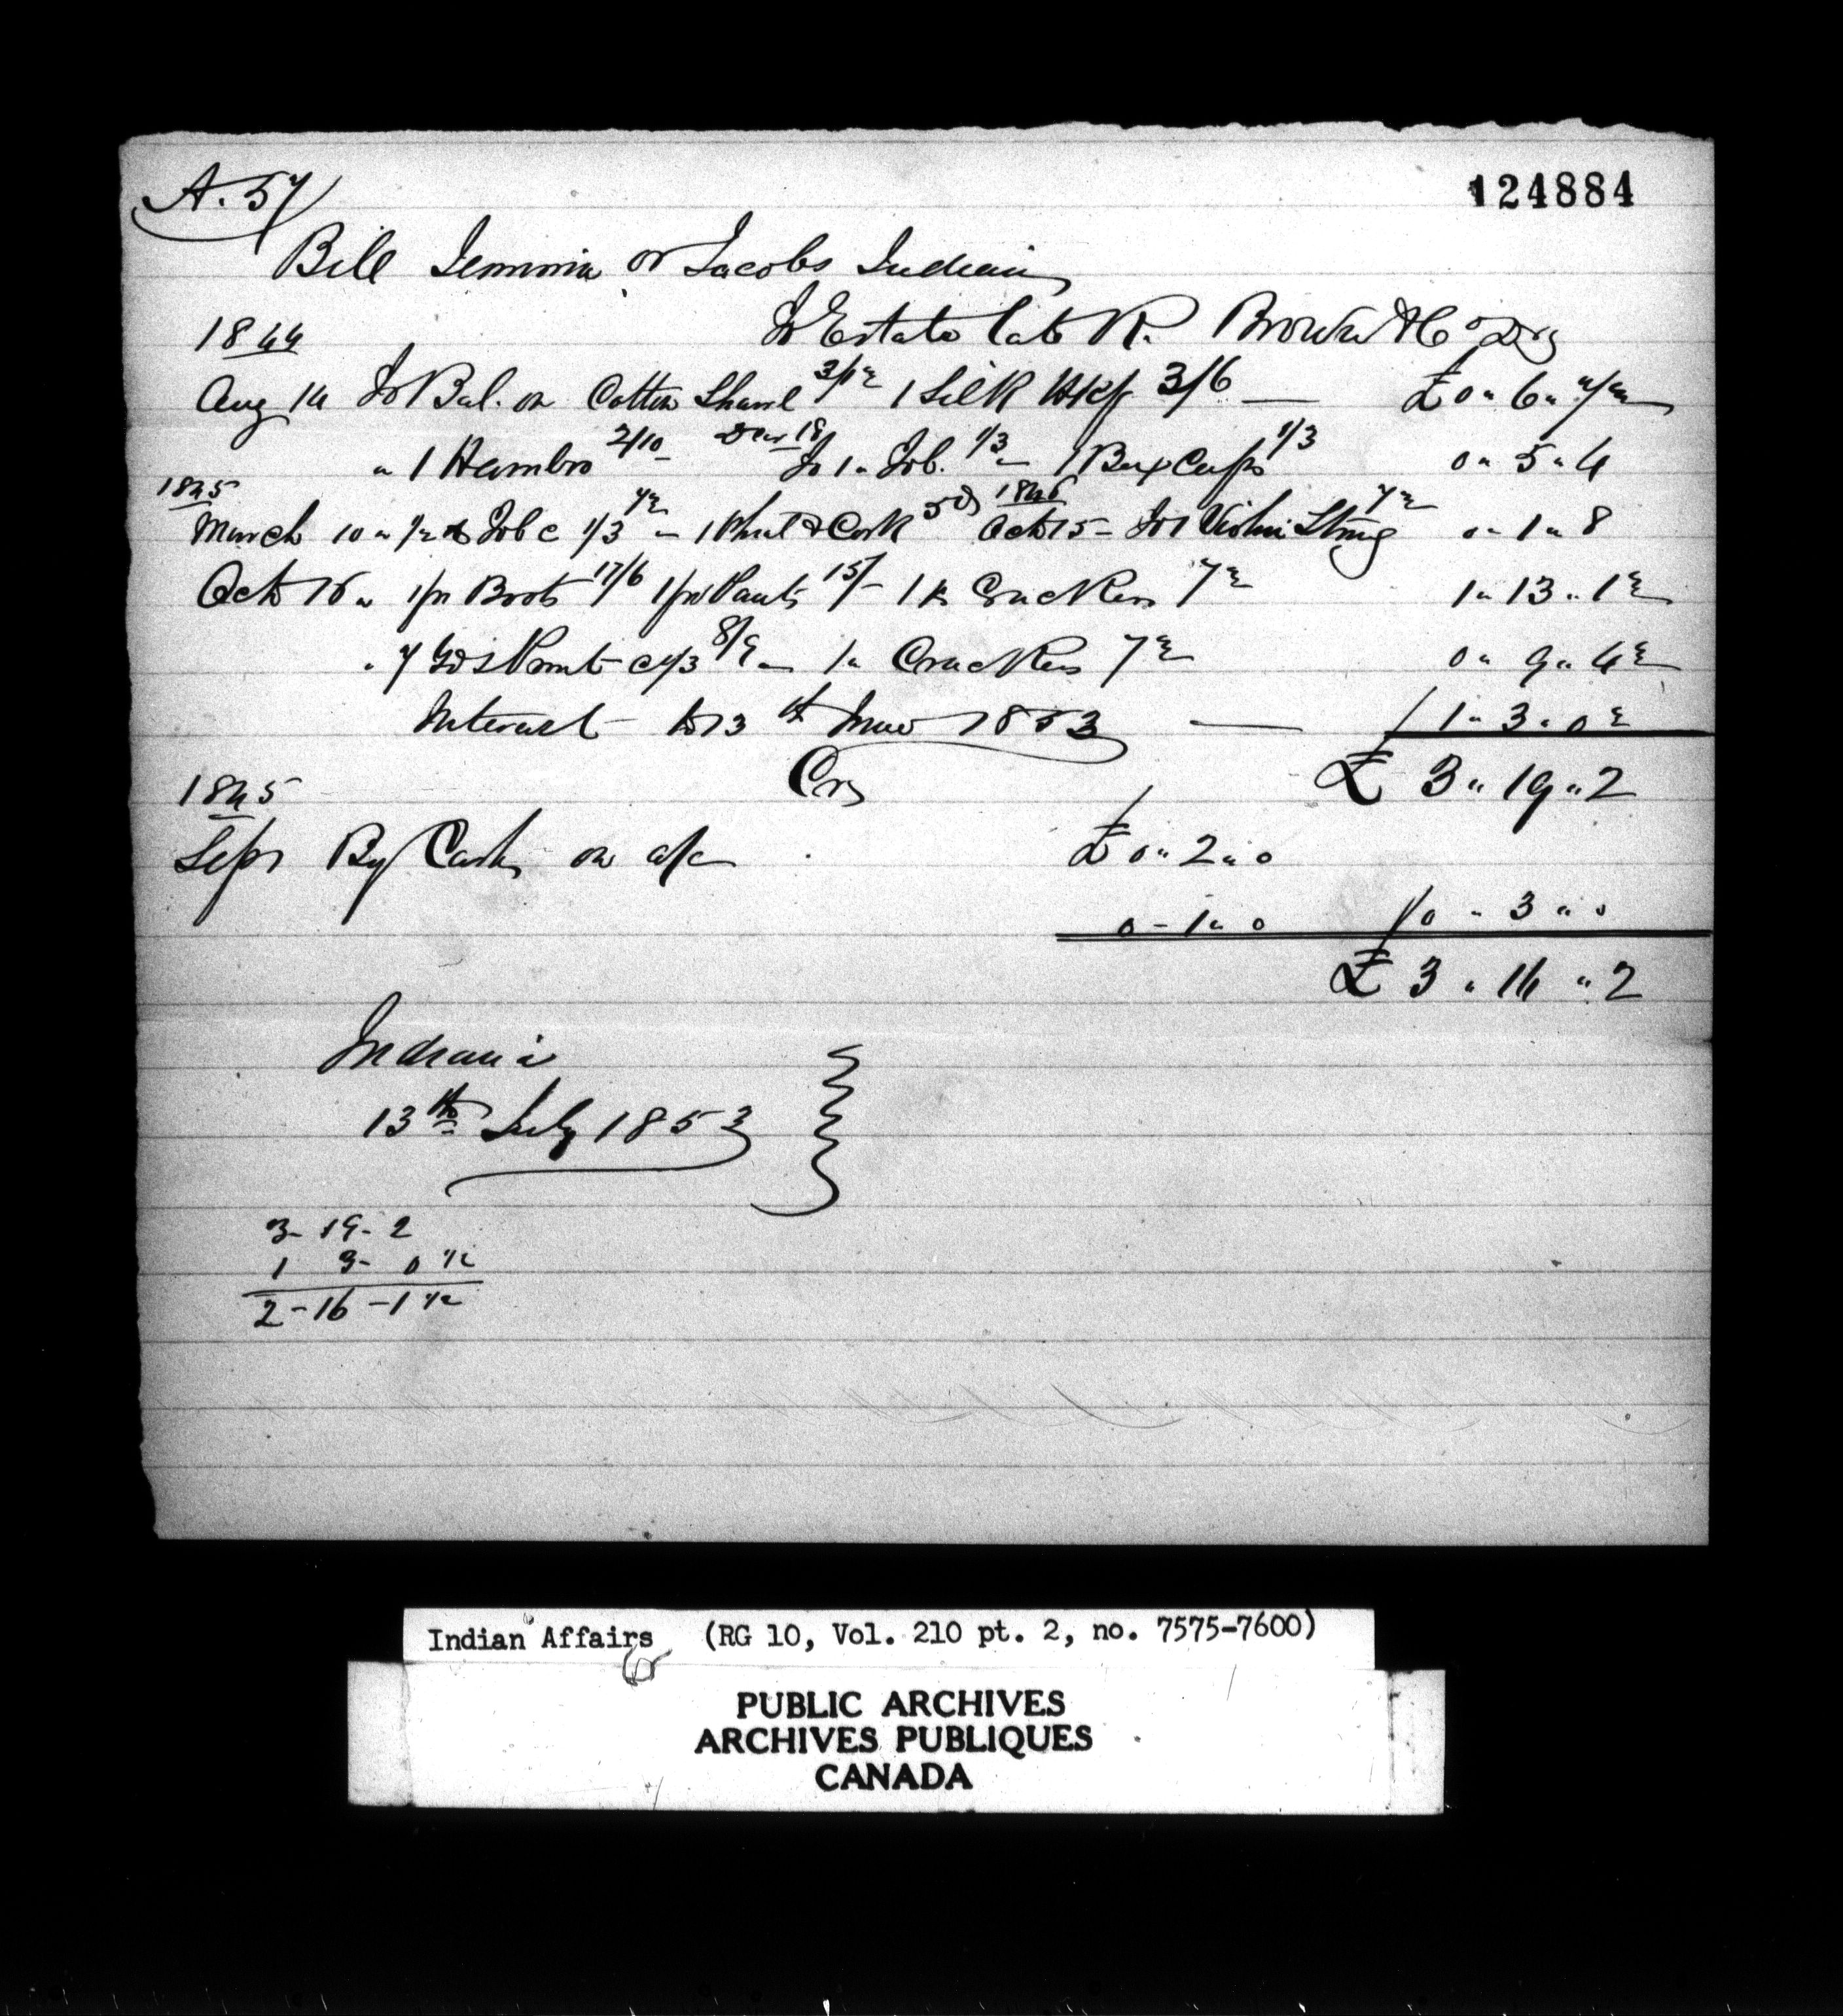 A. 57
124884
Bill Jemmin or Jacobs Indian
To Estate late R. Brown & Co Dr
1844
Aug 14 To Bal. on Cotton Shawl 3/1½ 1 Silk Hkf 3/6 — £ 0 " 6 " 7½
" 1 Hambro 2/10 - Decr 18 To 1 " Tob. 1/3 - 1 Box Caps 1/3 0 " 5 " 4
1845
March 10 " ½ lb Tob c 1/3 7½ - 1 Phial & Cork 5d 1846 Octr 15 - To 1 Violin String 7½ 0 " 1 " 8
Octr 16 " 1 pr Boots 17/6 1 pr Pants 15/- 1 lb Crackers 7½ 1 " 13 " 1½
" 7 Yds Print c 1/3 8/9 - 1 " Crackers 7½ 0 " 9 " 4½
Interest to 13th 1853 — 1 " 3 " 0½
£ 3 " 19 " 2
Cr
1845
Sepr By Cash on a/c £ 0 " 2 " 0
0 - 1 " 0 0 " 3 " 0
£ 3 " 16 " 2
Indiana
13th July 1853
3 - 19 - 2
1 3 - 0 ½
2 - 16 - 1 ½
Indian Affairs (RG 10, Vol. 210 pt. 2, no. 7575-7600)
PUBLIC ARCHIVES
ARCHIVES PUBLIQUES
CANADA